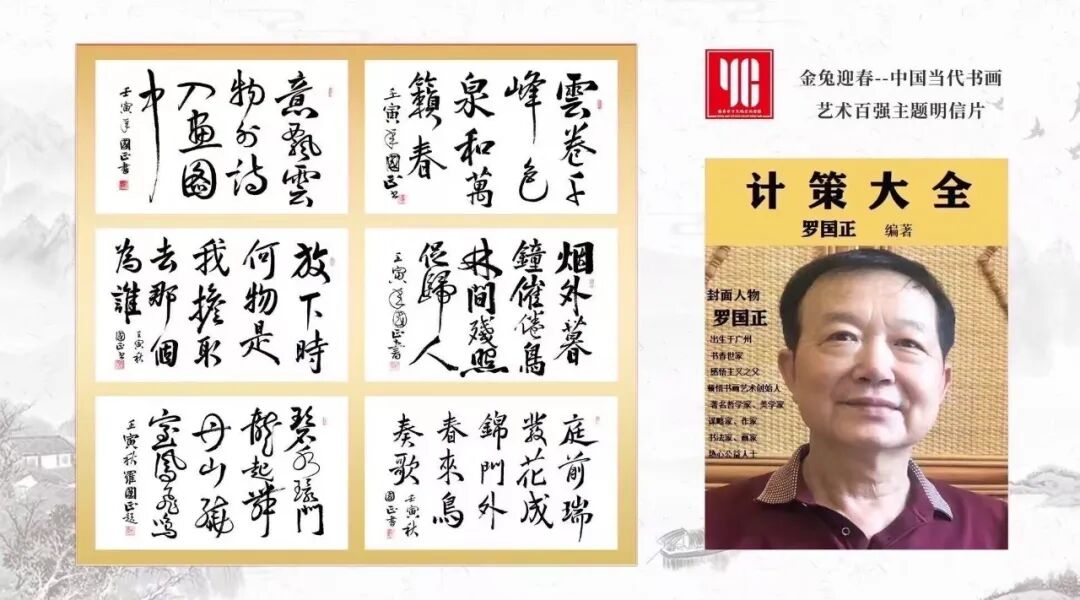 意飄雲
物外詩
入畫圖
中
壬寅年國正書
雲卷千
峰色
泉和萬
籟春
壬寅年國正書
放下時
何物是
我擔取
去那個
為誰
壬寅秋
國正書
烟外暮
鐘催倦鳥
林間殘照
促歸人
壬寅年國正書
碧水環門
龍起舞
丹山繞
室鳳飛鳴
壬寅秋羅國正題
庭前瑞
發花成
錦門外
春來鳥
奏歌
壬寅秋
國正書
金兔迎春--中国当代书画
艺术百强主题明信片
计策大全
罗国正 编著
封面人物
罗国正
出生于广州
书香世家
感悟主义之父
顿悟书画艺术创始人
著名哲学家、美学家
谋略家、作家
书法家、画家
热心公益人士